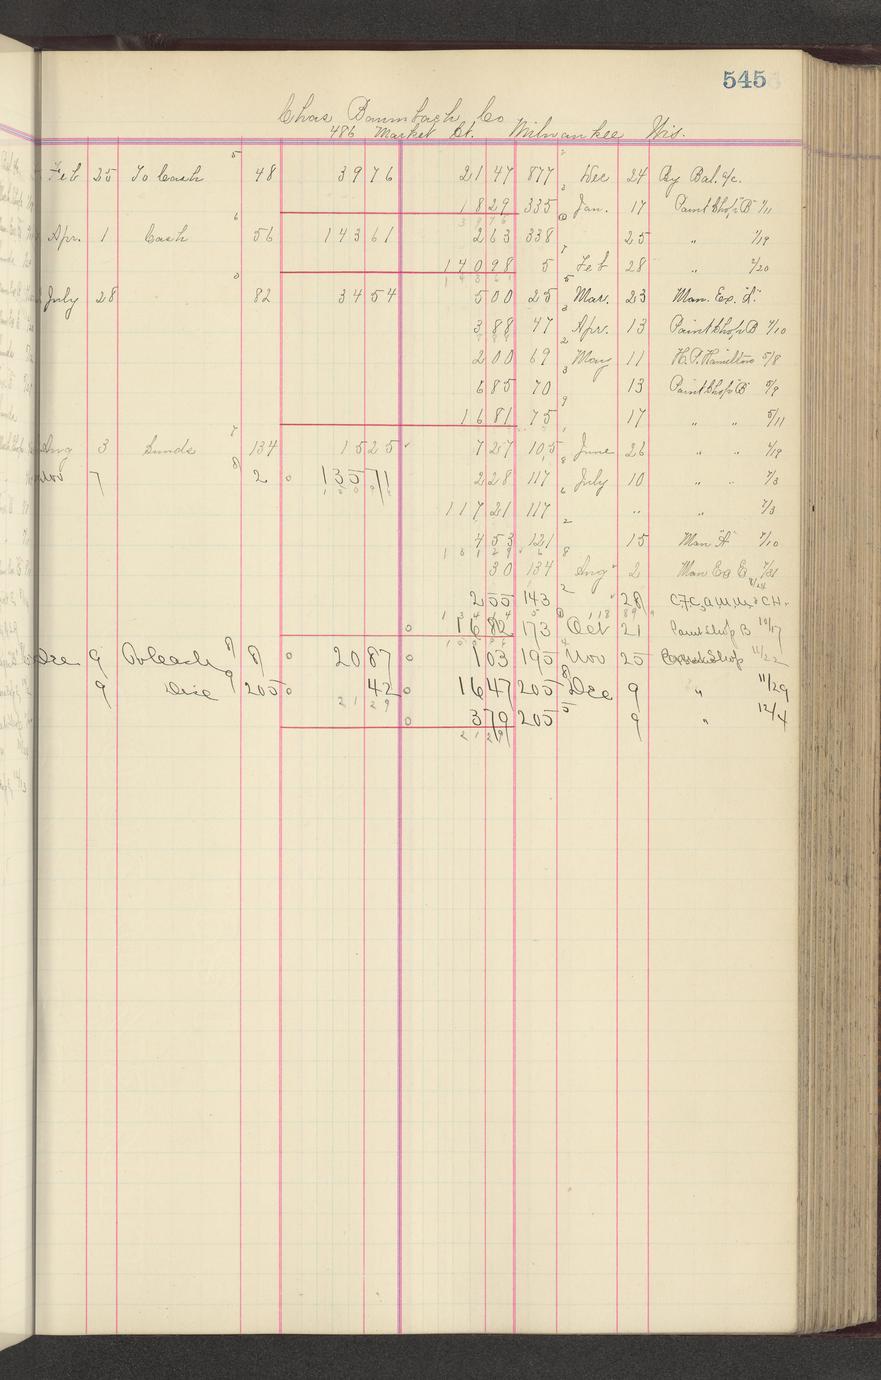 545
Chas Baumbach Co
486 Market St. Milwaukee Wis.
Feb 25 To Cash 5 48 39 76 21 47 877 2 Dec 24 By Bal. a/c.
18 29 335 3 Jan. 17 Paint Shop "B" 1/11
39 76
Apr. 1 Cash 6 56 143 61 2 63 338 25 " 1/19
140 98 5 7 Feb 28 " 2/20
143 61
July 28 3 82 34 54 5 00 25 5 Mar. 23 Man. Ex. "A"
3 88 47 3 Apr. 13 Paint Shop B 4/10
8 88
2 00 69 2 May 11 H. P. Hamilton 5/8
6 85 70 3 13 Paint Shop "B" 5/9
16 81 75 9 17 " " 5/11
Aug 3 Sunds 7 134 15 25 7 27 105 1 June 26 " " 4/19
Nov 7 8 2 135 71 2 28 117 8 July 10 " " 7/3
117 21 117 6 " " 7/3
4 53 121 2 15 Man "A" 7/10
30 134 8 Aug 2 Man Ea E 7/31
2 55 143 2 " 28
16 82 173 Oct 21 Paint Shop B 10/17
Dec 9 Rebach 8 8 20 87 1 03 195 4 Nov 25 Shop 11/22
9 Disc 9 205 42 16 47 205 8 Dec 9 " 11/29
21 29
3 79 205 5 9 " 12/4
21 29